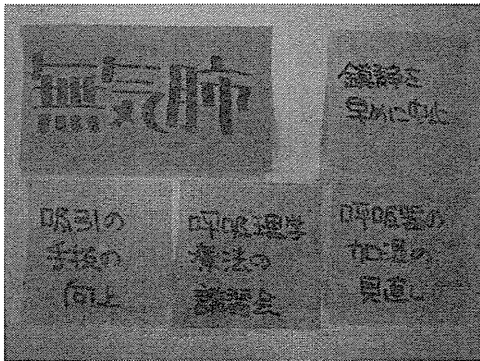 無気肺
鎮静を
早めに中止
吸引の
手技の
向上
呼吸理学
療法の
講習会
呼吸器の
加湿の
見直し